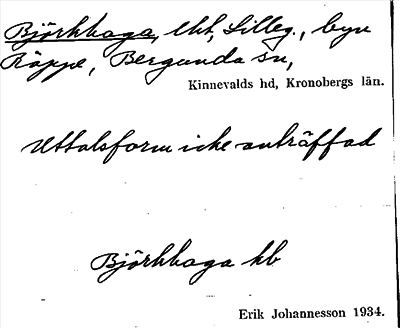 Björkhaga, lht, Lilleg., byn
Räppe, Bergunda sn,
Kinnevalds hd, Kronobergs län.
Uttalsform icke anträffad
Björkhaga hb
Erik Johannesson 1934.